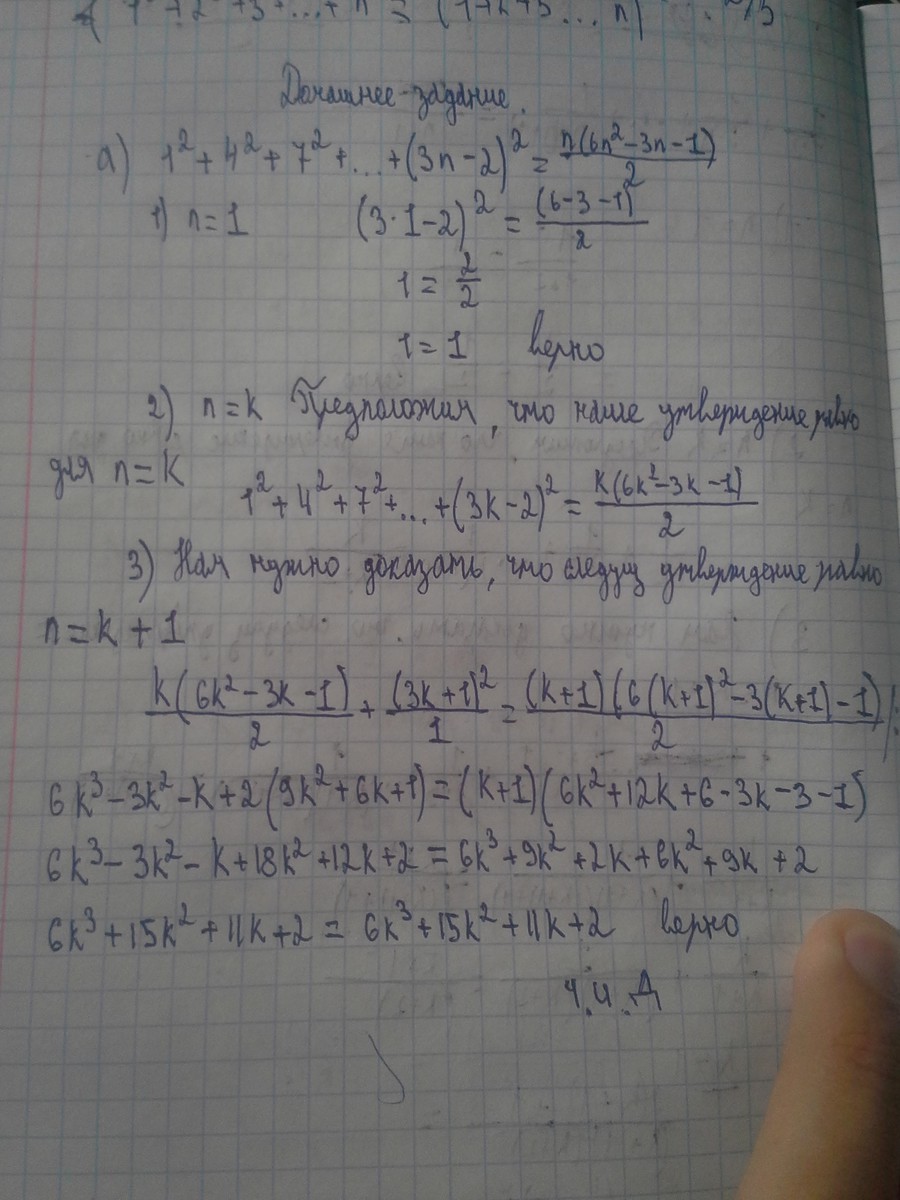 1 + 2 + 3 + ... + n = (1 + 2 + 3 ... n)
Домашнее задание.
а) 1² + 4² + 7² + ... + (3n - 2)² = n(6n² - 3n - 1)/2
1) n = 1 (3·1 - 2)² = (6 - 3 - 1)/2
1 = 2/2
1 = 1 верно
2) n = k Предположим, что наше утверждение равно
для n = k
1² + 4² + 7² + ... + (3k - 2)² = k(6k² - 3k - 1)/2
3) Нам нужно доказать, что следущ утверждение равно
n = k + 1
k(6k² - 3k - 1)/2 + (3k + 1)²/1 = (k + 1)(6(k + 1)² - 3(k + 1) - 1)/2
6k³ - 3k² - k + 2(9k² + 6k + 1) = (k + 1)(6k² + 12k + 6 - 3k - 3 - 1)
6k³ - 3k² - k + 18k² + 12k + 2 = 6k³ + 9k² + 2k + 6k² + 9k + 2
6k³ + 15k² + 11k + 2 = 6k³ + 15k² + 11k + 2 верно
ч.и.д